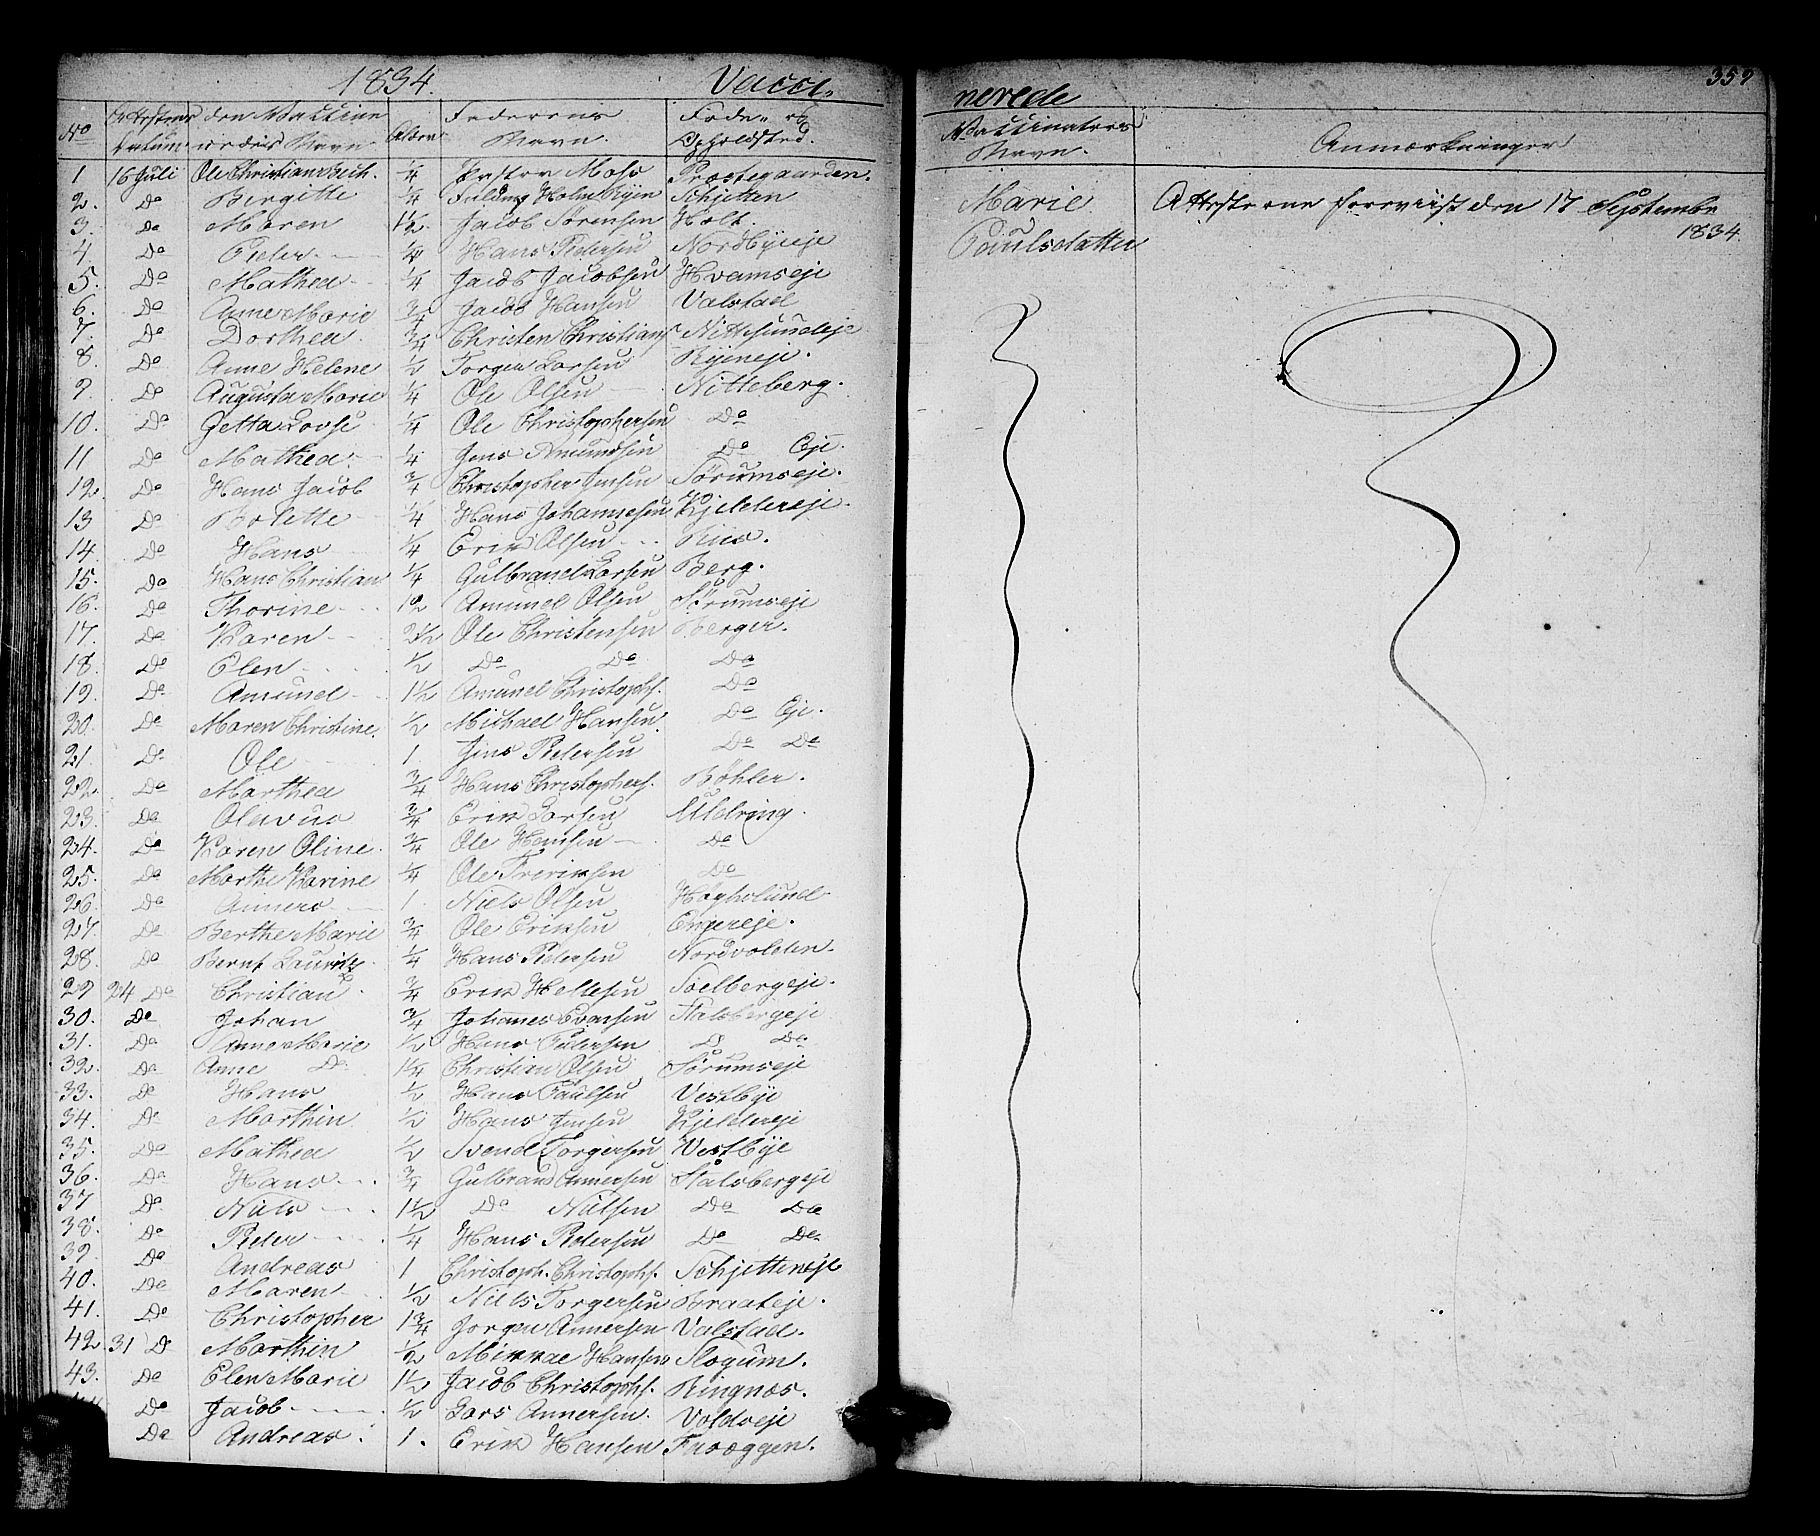 1834. Vacci-
No Attestens Datum den Vaccineredes Navn Alder Faderens Navn. Føde- og Opholdsted.
1 16 Juli Ole Christian Zech. 1/4 Pastor Moss Præstegaarden.
2. Do Birgitte 1/4 Holm Ryen Schjetten
3. Do Maren 1 1/2 Jacob Sørensen Holt.
4. Do Peder 1/4 Hans Pedersen Nordbyeeje
5. Do Mathea 1/4 Jacob Jacobsen Hvamseje
6. Do Anne Marie 3/4 Jacob Hansen Valstad
7. Do Dorthea 3/4 Christen Christians Nittesundeje
8. Do Anne Helene 1/2 Torger Larsen Ryeneje.
9. Do Augusta Marie 1/4 Ole Olsen Nitteberg.
10. Do Getta Lovise 1/4 Ole Christophersen Do
11 Do Mathea 1/4 Jens Amundsen Do Eje.
12. Do Hans Jacob 3/4 Christopher Jensen Sørumseje.
13 Do Bolette 1/4 Hans Johannesen Kjeldereje.
14. Do Hans 1/4 Erik Olsen Riis.
15. Do Hans Christian 1/4 Gulbrand Larsen Berg.
16. Do Thorine 1 1/2 Amund Olsen Sørumseje
17. Do Karen 2 1/2 Ole Christensen Berger.
18. Do Elen 1/2 Do Do Do
19. Do Amund 1 1/2 Amund Christophs. Do
20. Do Maren Christine. 1/2 Michael Hansen. Do Eje.
21. Do Ole 1 Jens Pedersen Do Do
22. Do Marthea 3/4 Hans Christophers. Bøhler.
23. Do Olavus 3/4 Erik Larsen Meldring.
24. Do Karen Oline. 3/4 Ole Hansen Do
25. Do Marthe Karine 1/4 Ole Freriksen Do
26. Do Anners 1 Niels Olsen Høgholund
27. Do Berthe Marie 3/4 Ole Eriksen Engereje.
28. Do Bernt Lauritz 1/4 Hans Pedersen Nordvolden.
29 24 Do Christian 3/4 Erik Hellesen Soelbergeje.
30. Do Johan 3/4 Johannes Evensen Stalsbergeje
31. Do Anne Marie 1/2 Hans Pedersen D Do
32. Do Anne Do 1 1/4 Christian Olsen Sørumseje
33. Do Hans 1/2 Hans Paulsen Vestbye
34. Do Marthin 1/2 Hans Jensen Kjeldereje
35. Do Mathea 1/2 Svend Torgersen Vestbye
36. Do Hans 3/4 Gulbrand Annersen Stalsbergeje
37 Do Niels 1 1/2 Do Nielsen Do Do
38. Do Peder 1/4 Hans Pedersen Do Do
39. Do Andreas 1 Christoph. Christophs. Schjetteneje
40. Do Maren 1/2 Niels Torgersen Braateje.
41. Do Christopher 1 3/4 Jørgen Annersen Valstad.
42. 31 D Marthin 1/2 Mikkel Hansen Slogum.
43. Do Elen Marie 1 1/2 Jacob Christophs. Ringnæs.
Do Jacob 1/2 Lars Annersen. Voldseje
Do Andreas 1. Erik Hansen Fuseggen.
359
nerede
Vaccinateurs Navn. Anmærkninger
Marie Attesterne foreviist den 17 Septembr
Paulsdatter 1834.